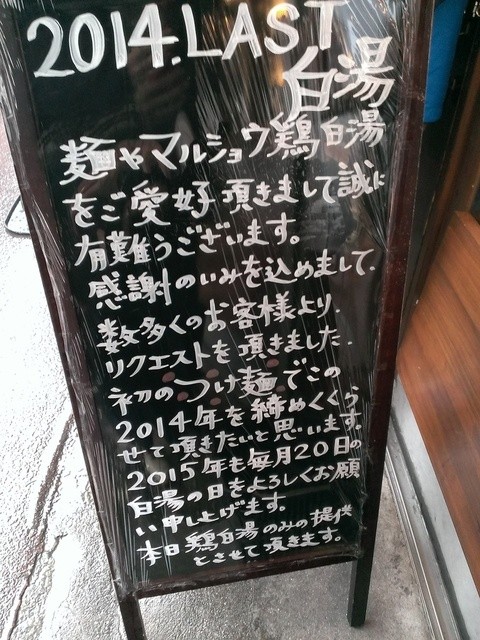 2014.LAST
白湯
麺やマルショウ鶏白湯
をご愛好頂きまして誠に
有難うございます。
感謝のいみを込めまして.
数多くのお客様より.
リクエストを頂きました.
初のつけ麺でこの
2014年を締めくくら
せて頂きたいと思います。
2015年も毎月20日の
白湯の日をよろしくお願
い申し上げます。
本日鶏白湯のみの提供
とさせて頂きます。